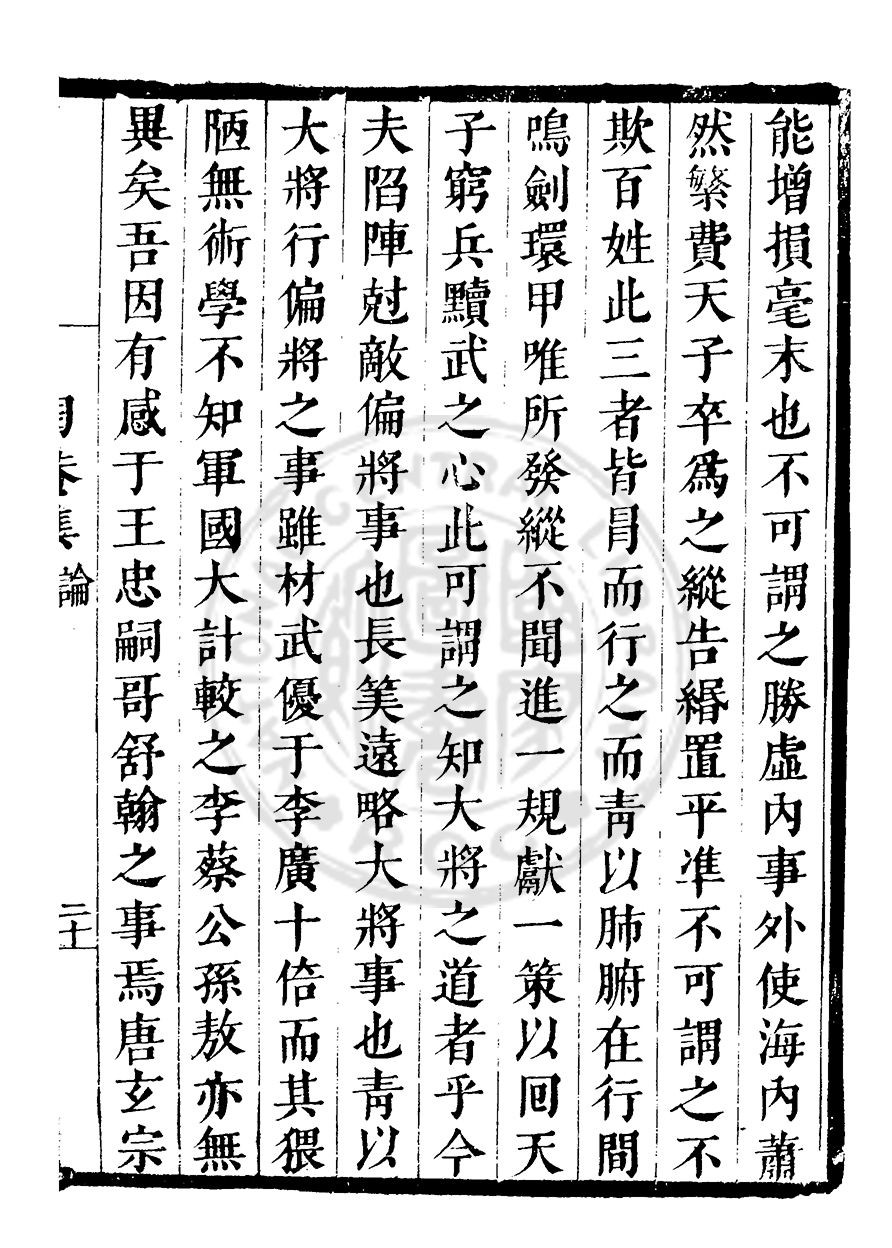 能增損毫末也不可謂之勝虛內事外使海內蕭
然繁費天子卒爲之縱告緡置平準不可謂之不
欺百姓此三者皆冐而行之而靑以肺腑在行間
鳴劍環甲唯所發縱不聞進一規獻一策以囘天
子窮兵黷武之心此可謂之知大將之道者乎今
夫陷陣尅敵偏將事也長筭遠略大將事也靑以
大將行偏將之事雖材武優于李廣十倍而其猥
陋無術學不知軍國大計較之李蔡公孫敖亦無
異矣吾因有感于王忠嗣哥舒翰之事焉唐玄宗
論
二十